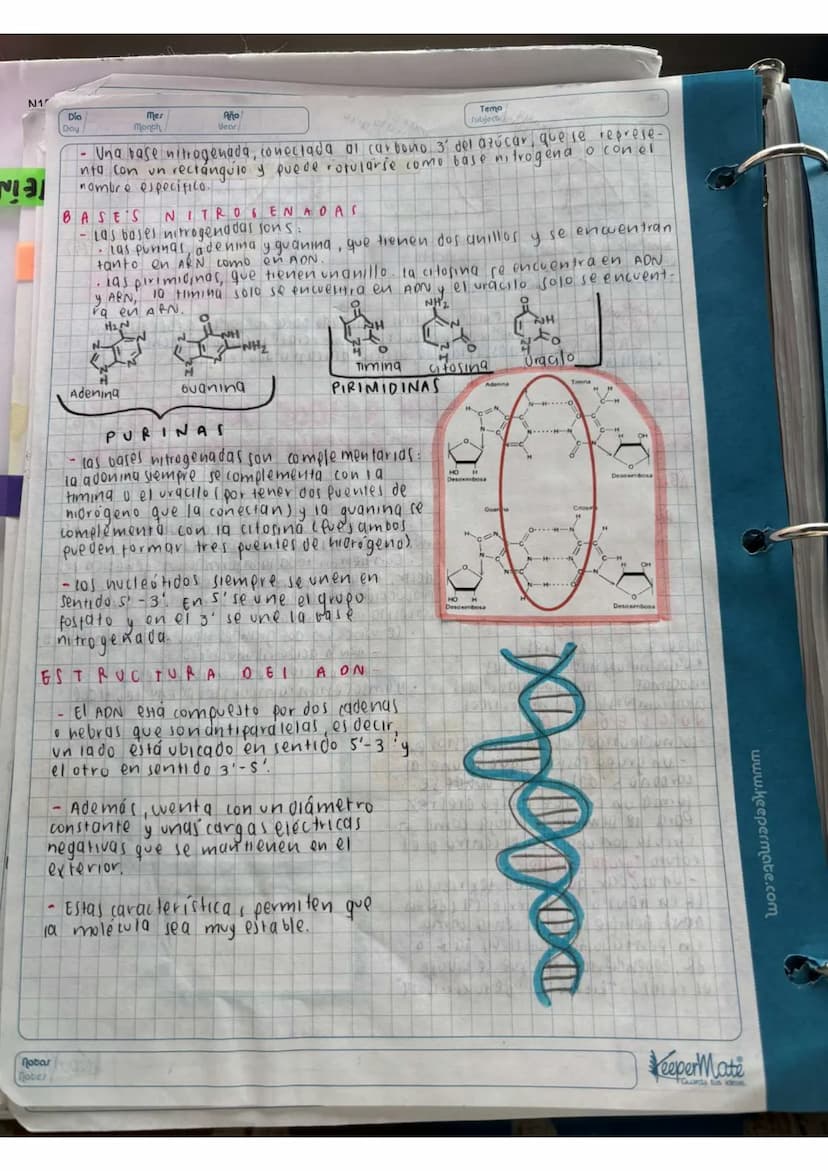 N1
Día
Day
Mes
Month
Año
Year
Tema
Subject
- Una base nitrogenada, conectada al carbono 3' del azúcar, que se represe-
nta con un rectángulo y puede rotularse como base nitrogena o con el
nombre específico.
BASES NITROGENADAS
- Las bases nitrogenadas sons:
· las purinas, adenina y guanina, que tienen dos anillos y se encuentran
tanto en ARN como en ADN.
· las pirimidinas, que tienen un anillo. la citosina se encuentra en ADN
y ARN, la timina solo se encuentra en ADN y el uracilo solo se encuent-
ra en ARN.
H₂N
N
N
N
N
H
Adenina
O
NH
NH₂
N
N
N
H
Guanina
PURINAS
O
NH
O
N
H
Timina
NH₂
N
O
N
H
citosina
O
NH
O
N
H
Uracilo
PIRIMIDINAS
- las bases nitrogenadas son complementarias:
la adenina siempre se complementa con la
timina o el uracilo (por tener dos puentes de
hidrógeno que la conectan) y la guanina se
complementa con la citosina (pues ambos
pueden formar tres puentes de hidrógeno).
- Los nucleótidos siempre se unen en
sentido 5'-3'. En 5' se une el grupo
fosfato y en el 3' se une la base
nitrogenada.
Adenina
Timina
HO H
Desoxirribosa
OH
Desoxirribosa
Guanina
Citosina
HO H
Desoxirribosa
OH
Desoxirribosa
ESTRUCTURA DEL ADN
- El ADN está compuesto por dos cadenas
o hebras que son antiparalelas, es decir,
un lado está ubicado en sentido 5'-3' y
el otro en sentido 3'-5'.
- Además, cuenta con un diámetro
constante y unas cargas eléctricas
negativas que se mantienen en el
exterior.
- Estas característica, permiten que
la molécula sea muy estable.
www.keepermate.com
Notas
Notes
KeeperMate
Guarda tus ideas